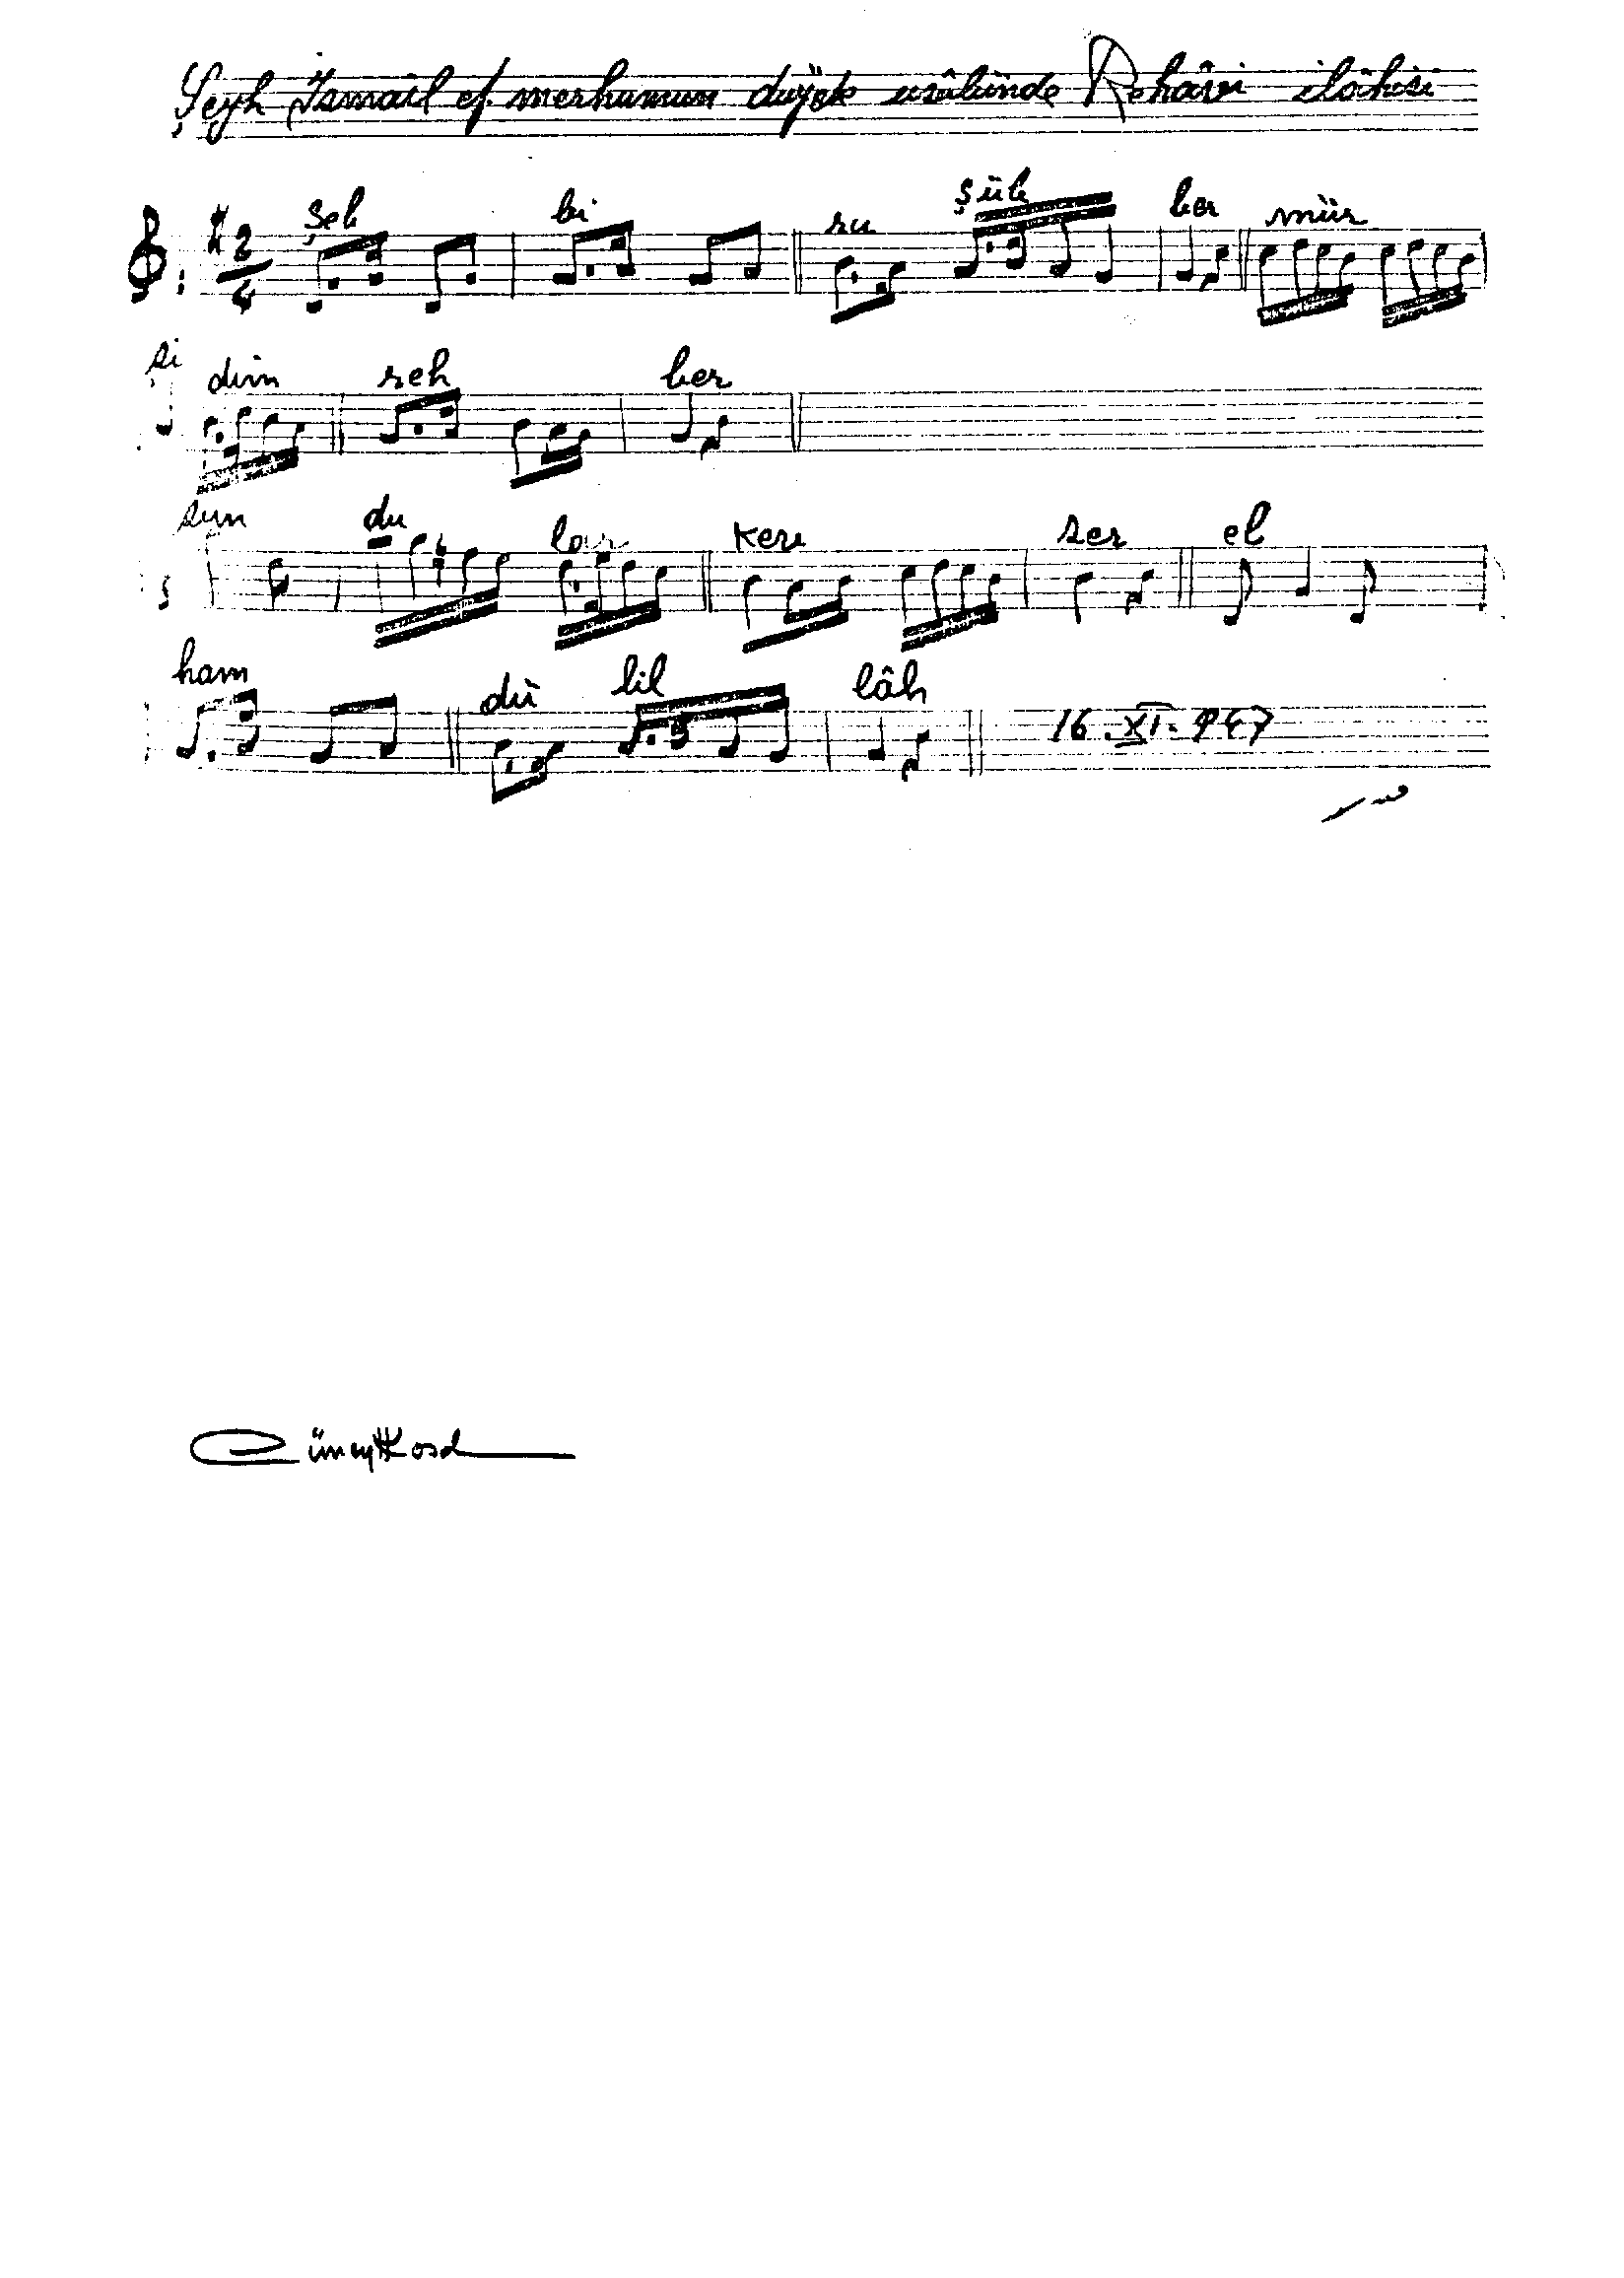 Şeyh İsmail ef. merhumun düyek usûlünde Rehâvi ilâhisi
2/4
Şeb bi ru şüb ber mür
şi dim reh ber
sun du lar kev ser el
ham dü lil lâh 16.XI.947
Cüneyt Kosal